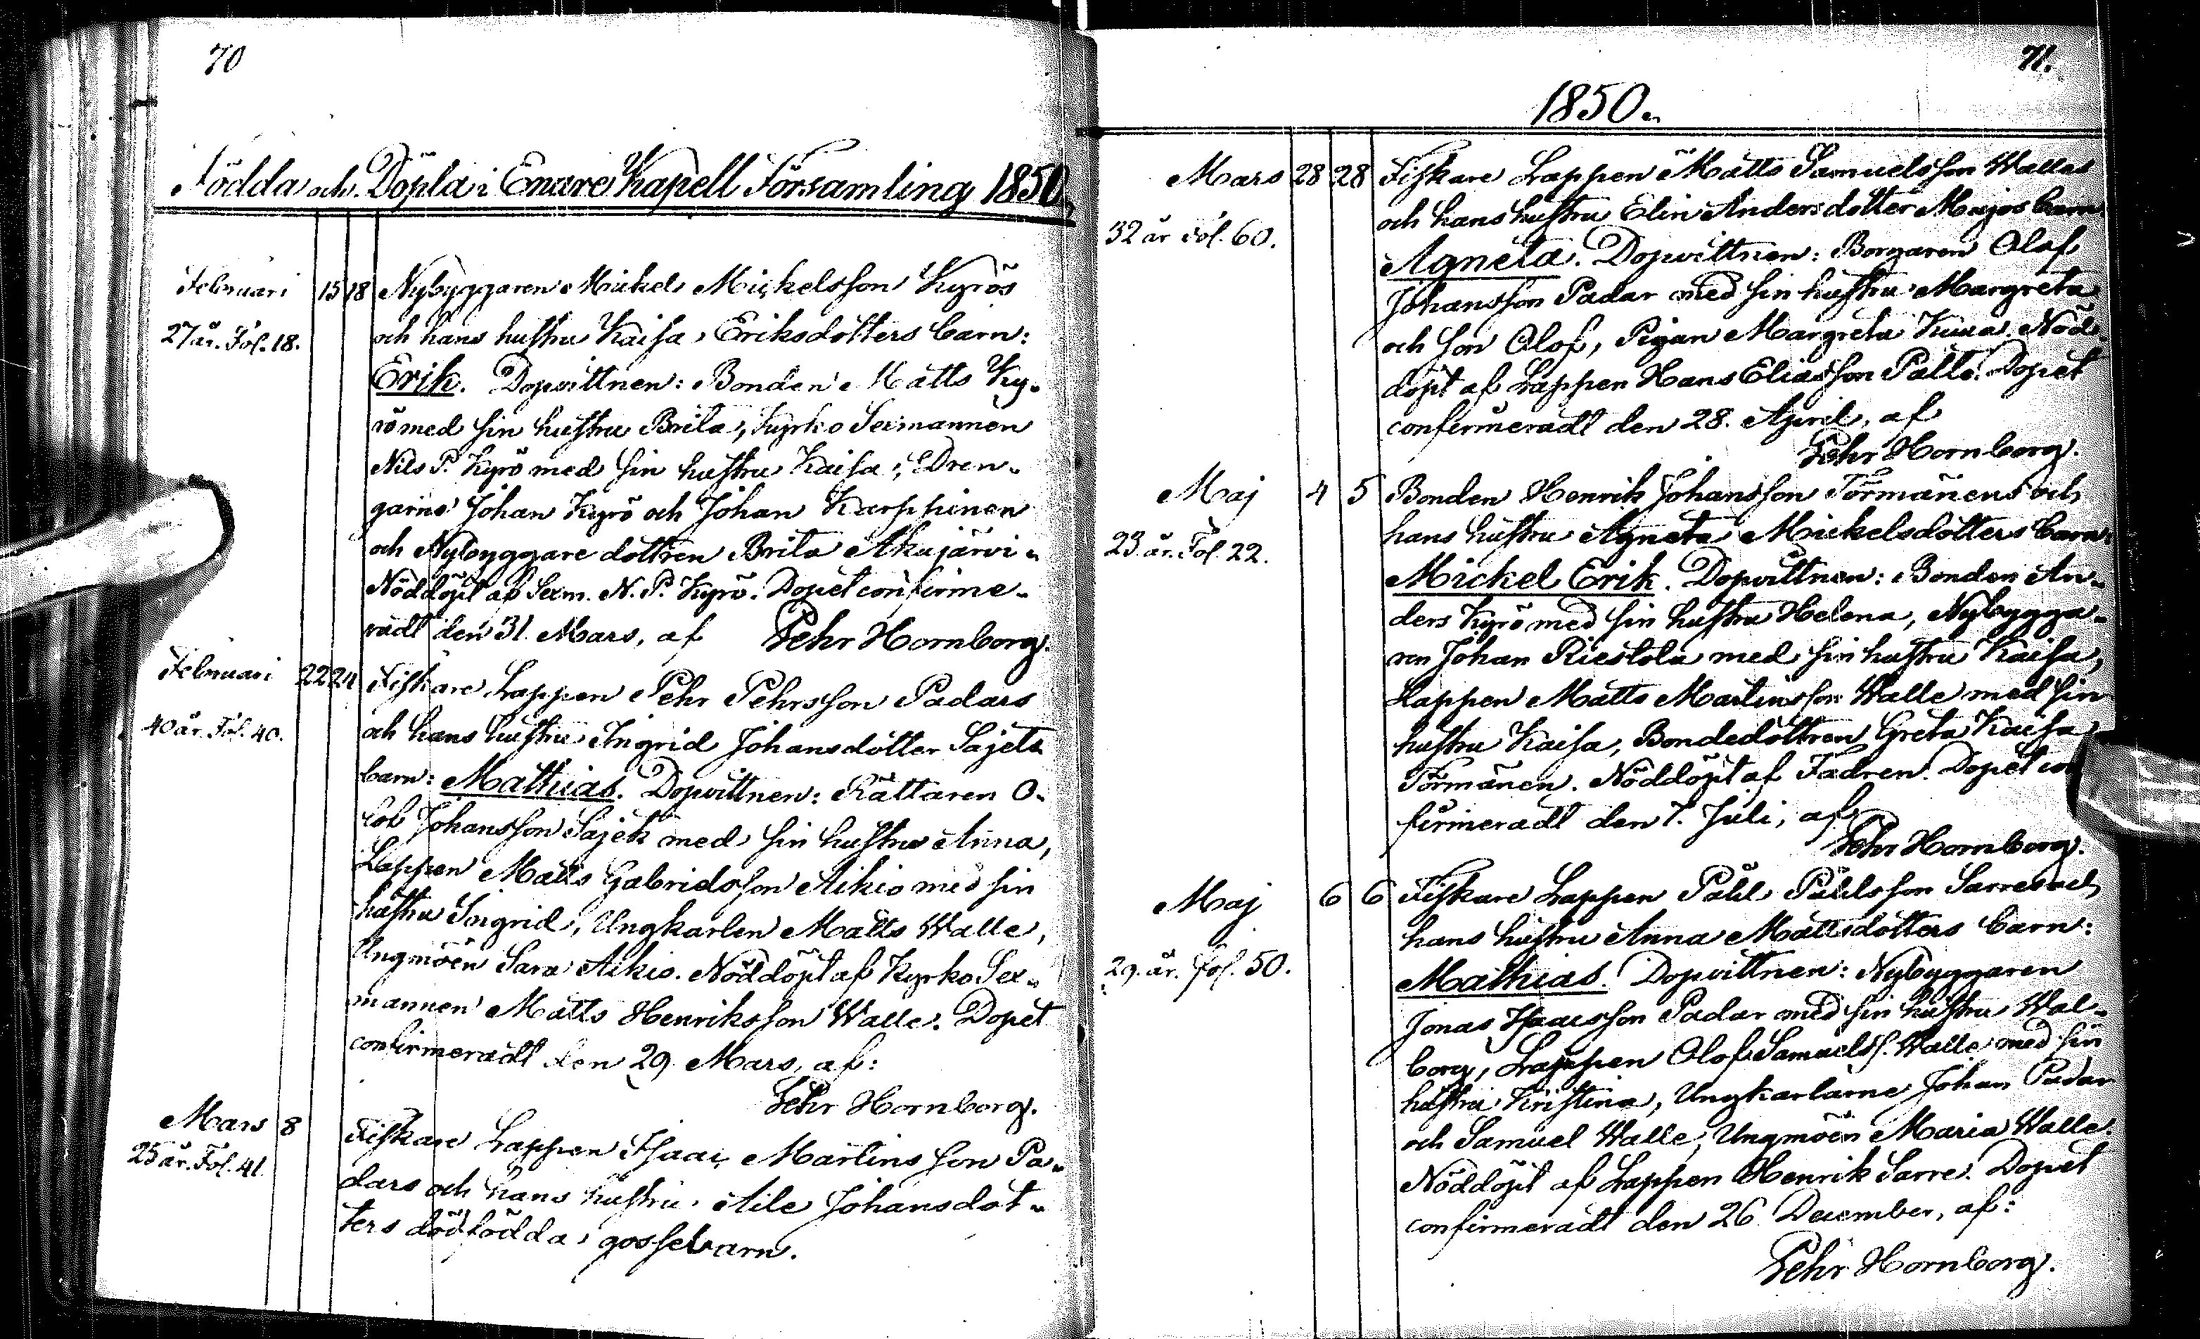 70
Födda och Döpta i Enare Kapell Församling 1850.
Februari 15 18 Nybyggaren Mickel Mickelsson Kyrös
27 år. Fol. 18. och hans hustru Kaisa Eriksdotters barn:
Erik. Dopvittnen: Bonden Matts Ky-
rö med sin hustru Brita, Kyrko Sexmannen
Nils P. Kyrö med sin hustru Kaisa, Dren-
garne Johan Kyrö och Johan Karppinen
och Nybyggare dottren Brita Akujärvi.
Nöddöpt af Sexm. N. P. Kyrö. Dopet confirme-
radt den 31. Mars, af Pehr Hornborg.
Februari 22 24 Fiskare Lappen Pehr Pehrsson Padars
40 år. Fol. 40. och hans hustru Ingrid Johansdotter Sajets
barn: Mathias. Dopvittnen: Rättaren O-
lof Johansson Sajet med sin hustru Anna,
Lappen Matts Gabrielsson Aikio med sin
hustru Ingrid, Ungkarlen Matts Walle,
Ungmöen Sara Aikio. Nöddöpt af Kyrko Sex-
mannen Matts Henriksson Walle. Dopet
confirmeradt den 29 Mars, af:
Pehr Hornborg.
Mars 8 Fiskare Lappen Isaac Martinsson Pa-
25 år. Fol. 41. dars och hans hustru Aile Johansdot-
ters dödfödda gossebarn.
71.
1850.
Mars 28 28 Fiskare Lappen Matts Samuelsson Walles
32 år Fol. 60. och hans hustru Elin Andersdotter Majos barn
Agneta. Dopvittnen: Borgaren Olof
Johansson Padar med sin hustru Margreta
och son Olof, Pigan Margreta Kuua. Nöd-
döpt af Lappen Hans Eliasson Palto. Dopet
confirmeradt den 28. April, af
Pehr Hornborg.
Maj 4 5 Bonden Henrik Johansson Törmänens och
23 år. Fol. 22. hans hustru Agneta Mickelsdotters barn:
Mickel Erik. Dopvittnen: Bonden An-
ders Kyrö med sin hustru Helena, Nybygga-
ren Johan Riestola med sin hustru Kaisa,
Lappen Matts Martinsson Walle med sin
hustru Kaisa, Bondedottren Greta Kaisa
Törmänen. Nöddöpt af Fadren. Dopet con
firmeradt den 7. Juli, af
Pehr Hornborg.
Maj 6 6 Fiskare Lappen Påhl Påhlsson Sarres och
29. år. Fol. 50. hans hustru Anna Mattsdotters barn:
Mathias. Dopvittnen: Nybyggaren
Jonas Isacsson Padar med sin hustru Wal-
borg, Lappen Olof Samuelss. Walle med sin
hustru Kristina, Ungkarlarne Johan Padar
och Samuel Walle, Ungmöen Maria Walle.
Nöddöpt af Lappen Henrik Sarre. Dopet
confirmeradt den 26 December, af:
Pehr Hornborg.